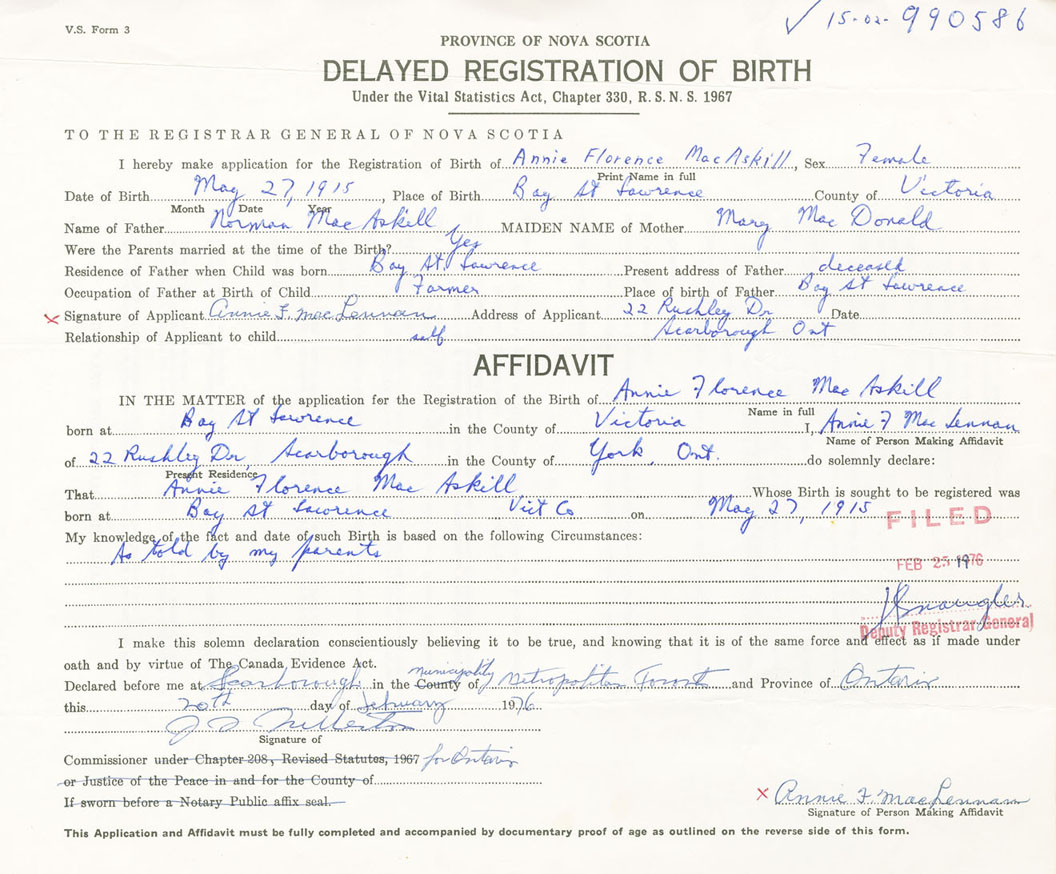 V.S. Form 3
✓ 15-02-990586
PROVINCE OF NOVA SCOTIA
DELAYED REGISTRATION OF BIRTH
Under the Vital Statistics Act, Chapter 330, R. S. N. S. 1967
TO THE REGISTRAR GENERAL OF NOVA SCOTIA
I hereby make application for the Registration of Birth of Annie Florence MacAskill, Sex Female
Print Name in full
Date of Birth May 27, 1915, Place of Birth Bay St Lawrence County of Victoria
Month Date Year
Name of Father Norman Mac Askill MAIDEN NAME of Mother Mary Mac Donald
Were the Parents married at the time of the Birth? Yes
Residence of Father when Child was born Bay St. Lawrence Present address of Father deceased
Occupation of Father at Birth of Child Farmer Place of birth of Father Bay St Lawrence
x Signature of Applicant Annie F. MacLennan Address of Applicant 22 Rushley Dr Date
Relationship of Applicant to child self Scarborough Ont
AFFIDAVIT
IN THE MATTER of the application for the Registration of the Birth of Annie Florence Mac Askill
Name in full
born at Bay St Lawrence in the County of Victoria I, Annie F Mac Lennan
Name of Person Making Affidavit
of 22 Rushley Dr, Scarborough in the County of York, Ont. do solemnly declare:
Present Residence
That Annie Florence Mac Askill Whose Birth is sought to be registered was
born at Bay St Lawrence Vict Co on May 27, 1915
FILED
My knowledge of the fact and date of such Birth is based on the following Circumstances:
As told by my parents
FEB 25 1976
Deputy Registrar General
I make this solemn declaration conscientiously believing it to be true, and knowing that it is of the same force and effect as if made under
oath and by virtue of The Canada Evidence Act.
Declared before me at Scarborough in the County municipality of Metropolitan Toronto and Province of Ontario
this 20th day of February 1976
Signature of
Commissioner under Chapter 208, Revised Statutes, 1967 for Ontario
or Justice of the Peace in and for the County of
If sworn before a Notary Public affix seal.
x Annie F. MacLennan
Signature of Person Making Affidavit
This Application and Affidavit must be fully completed and accompanied by documentary proof of age as outlined on the reverse side of this form.